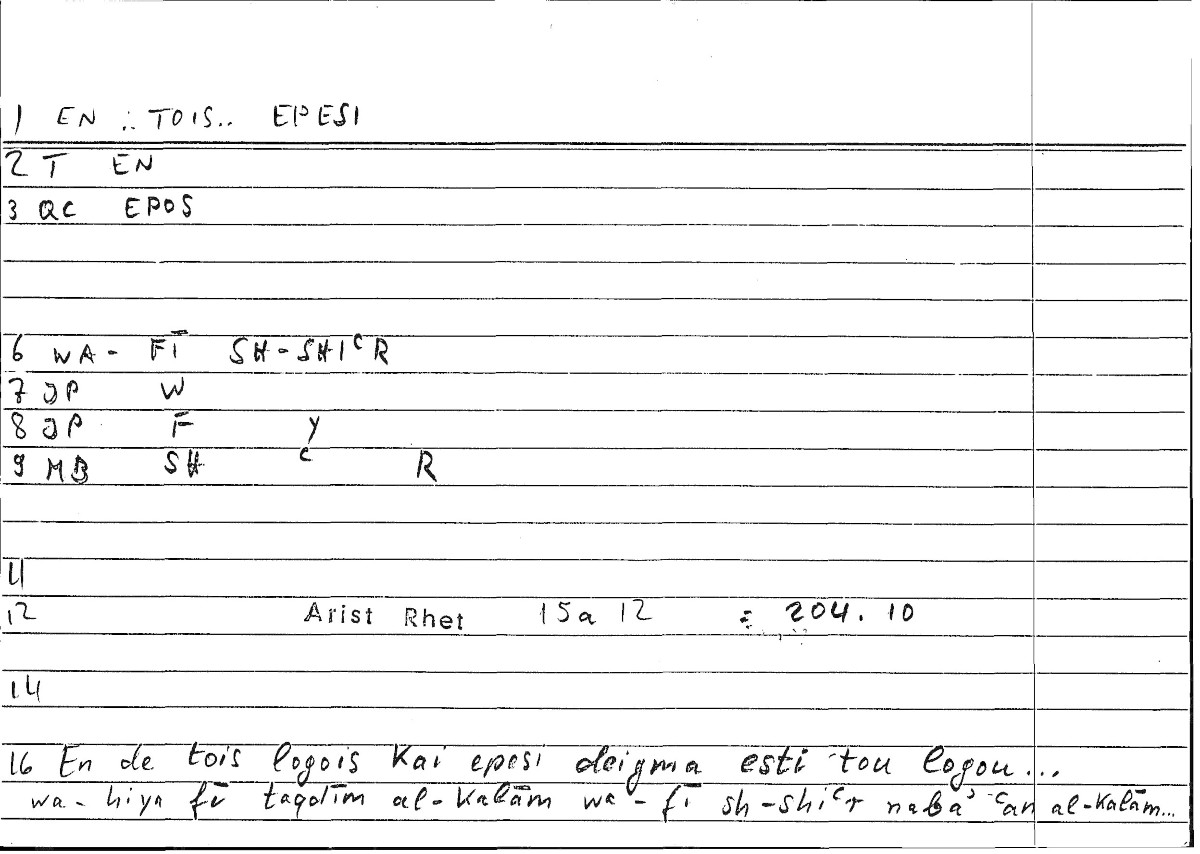 1 EN ∴ TOIS.. EPESI
2 T EN
3 QC EPOS
6 WA- FĪ SH-SHIᶜR
7 JP W
8 JP F Y
9 MB SH ᶜ R
11
12 Arist Rhet 15a 12 = 204. 10
14
16 En de tois logois kai epesi deigma esti tou logou...
wa-hiya fī taqdīm al-kalām wa-fī sh-shiᶜr nabaʾ ᶜan al-kalām...